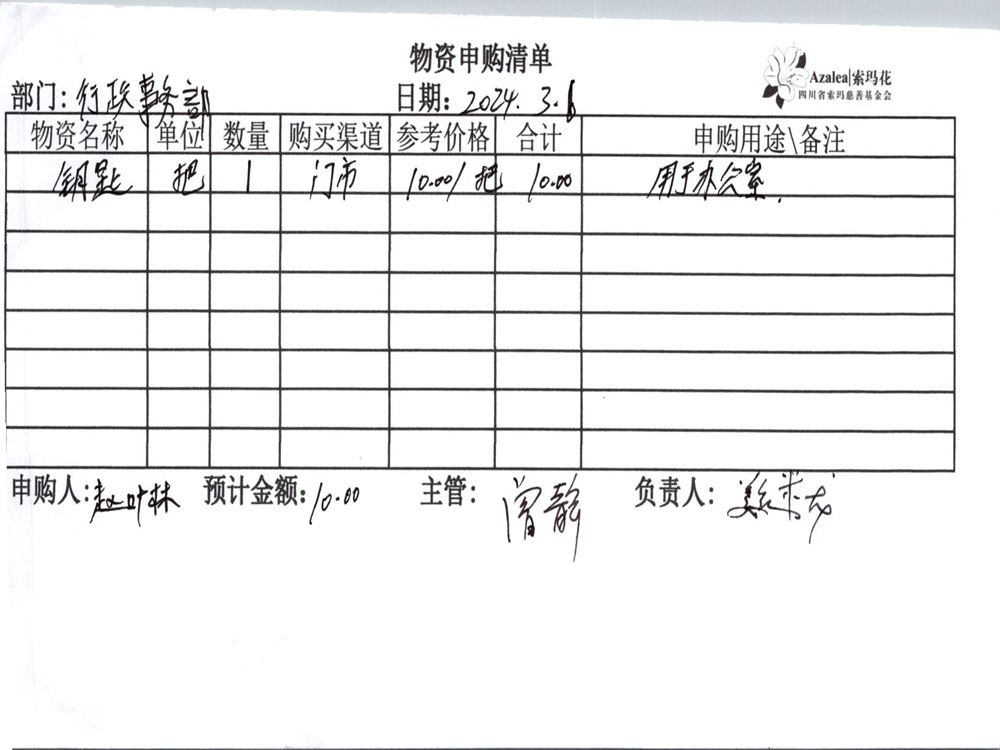 物资申购清单
Azalea|索玛花
四川省索玛慈善基金会
部门：行政事务部 日期：2024.3.6
物资名称 单位 数量 购买渠道 参考价格 合计 申购用途\备注
钥匙 把 1 门市 10.00/把 10.00 用于办公室.
申购人：赵 林 预计金额：10.00 主管： 静 负责人：